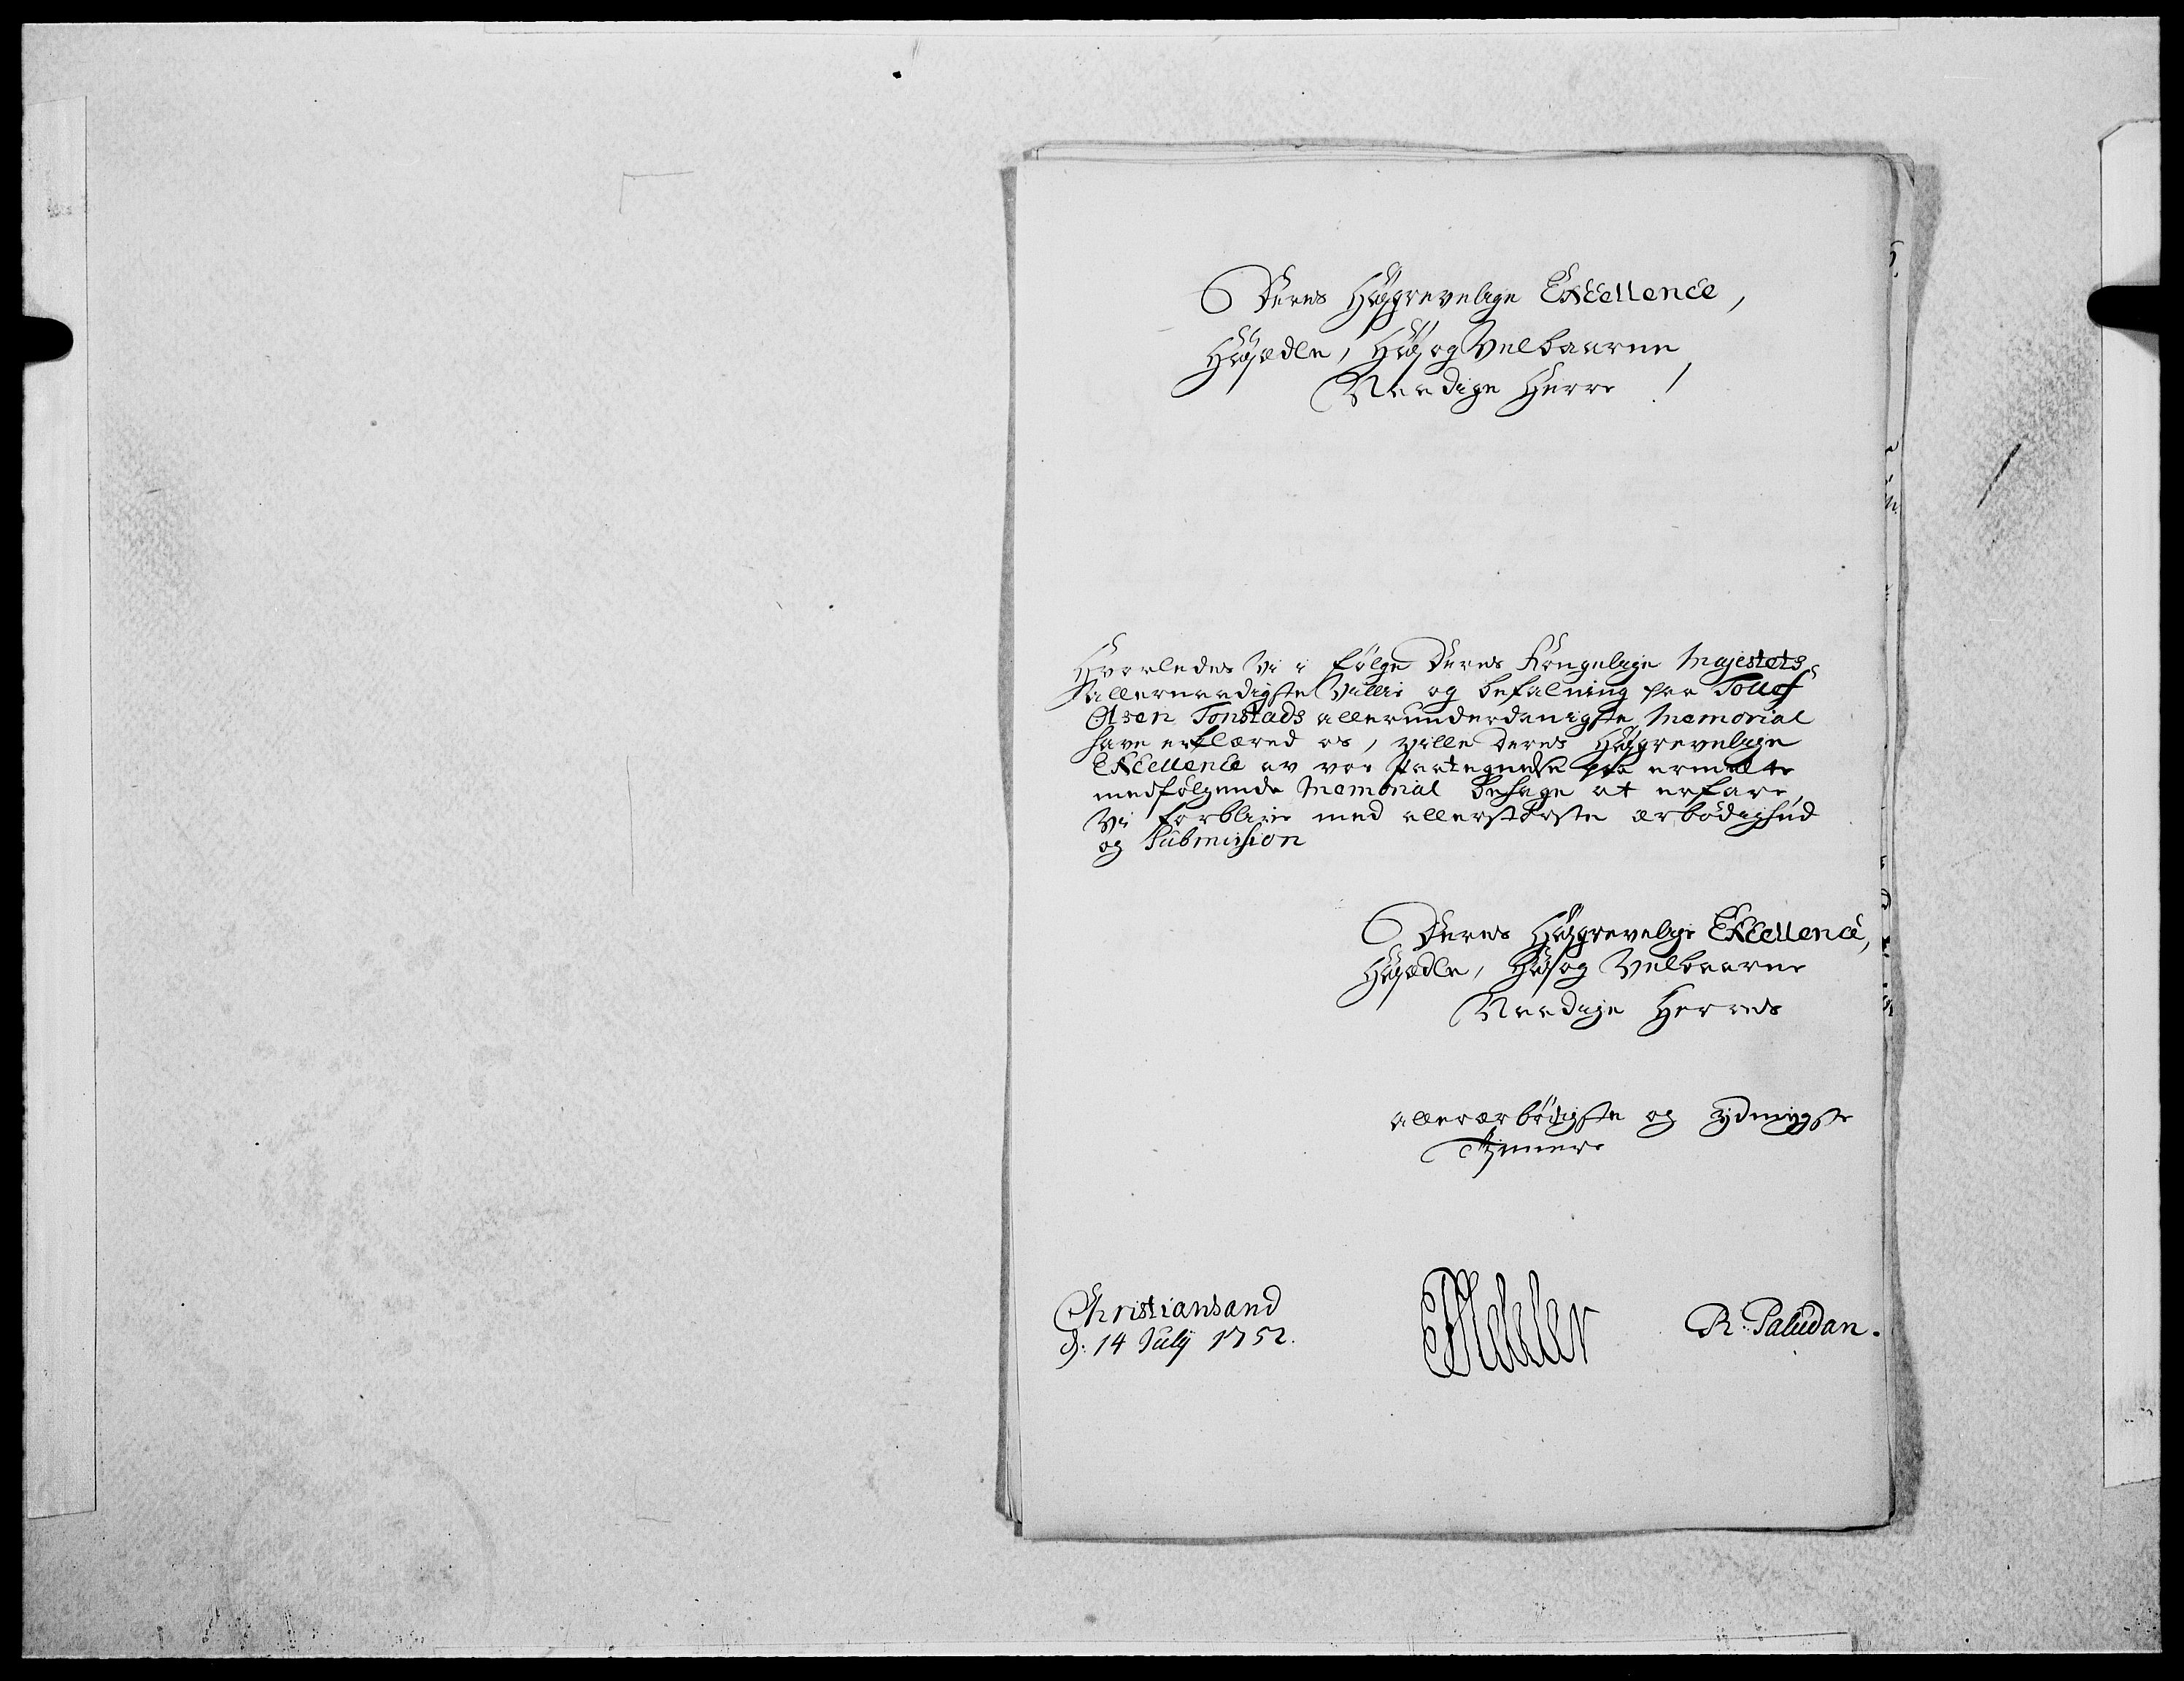 Deres Høygrevelige Excellence,
Høyædle, Høy og Velbaarne
Naadige Herre!
Hvorledes Vi i følge Deres Kongelige Majestets
allernaadigste Villie og befalning paa Tollef
Olsen Tonstads allerunderdanigste Memorial
have erklæred os, ville Deres Høygrevelige
Excellence av vor Paategnelse paa ermelte
medfølgende Memorial behage at erfare,
Vi forblive med allerstørste ærbødighed
og Submission
Deres Høygrevelige Excellence,
Høyædle, Høy og Velbaarne
Naadige Herres
allerærbødigste og ydmygste
Tjennere
Christiansand
d: 14 July 1752.
R: Paludan.